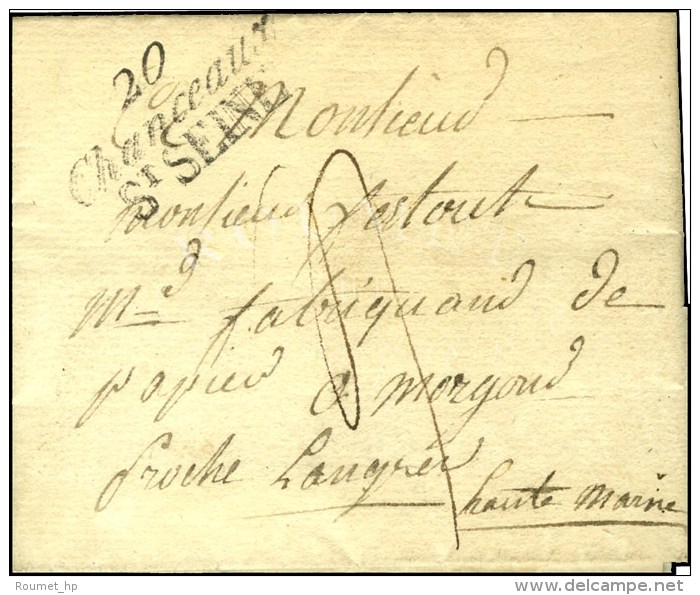 20
Chanceaux
ST SEINE
Monsieur
monsieur festout
Md fabriquand de
papier a morgond
proche Langres
haute marne
Roumet_hp
delcampe.net